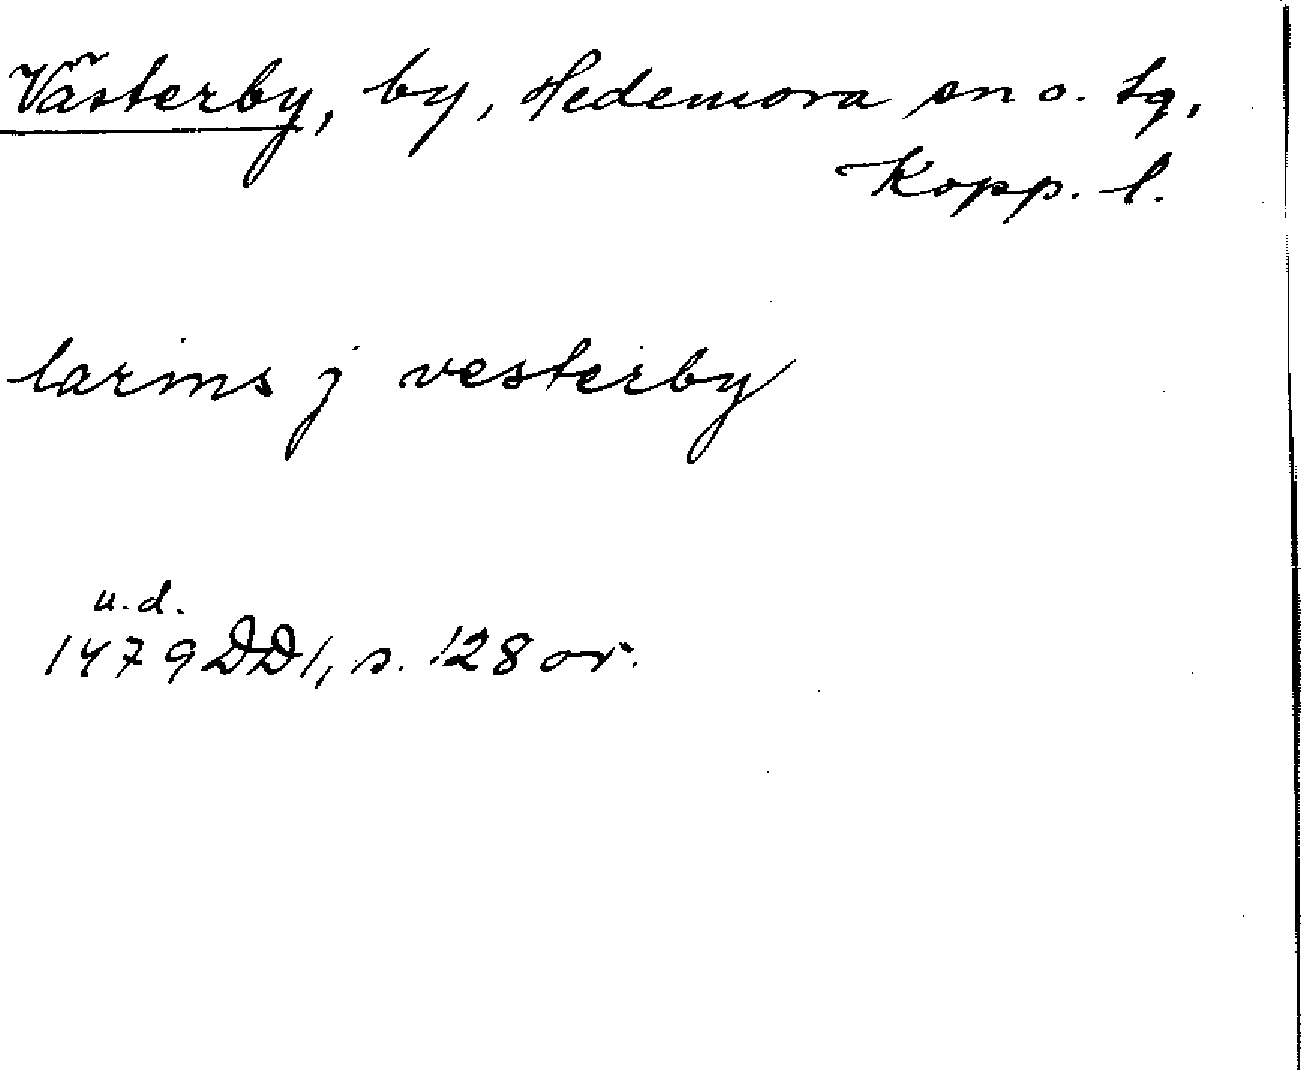 Västerby, by, Hedemora sn o. tg,
Kopp. l.
larins j vesterby
u.d.
1479 DD 1, s. 128 or.